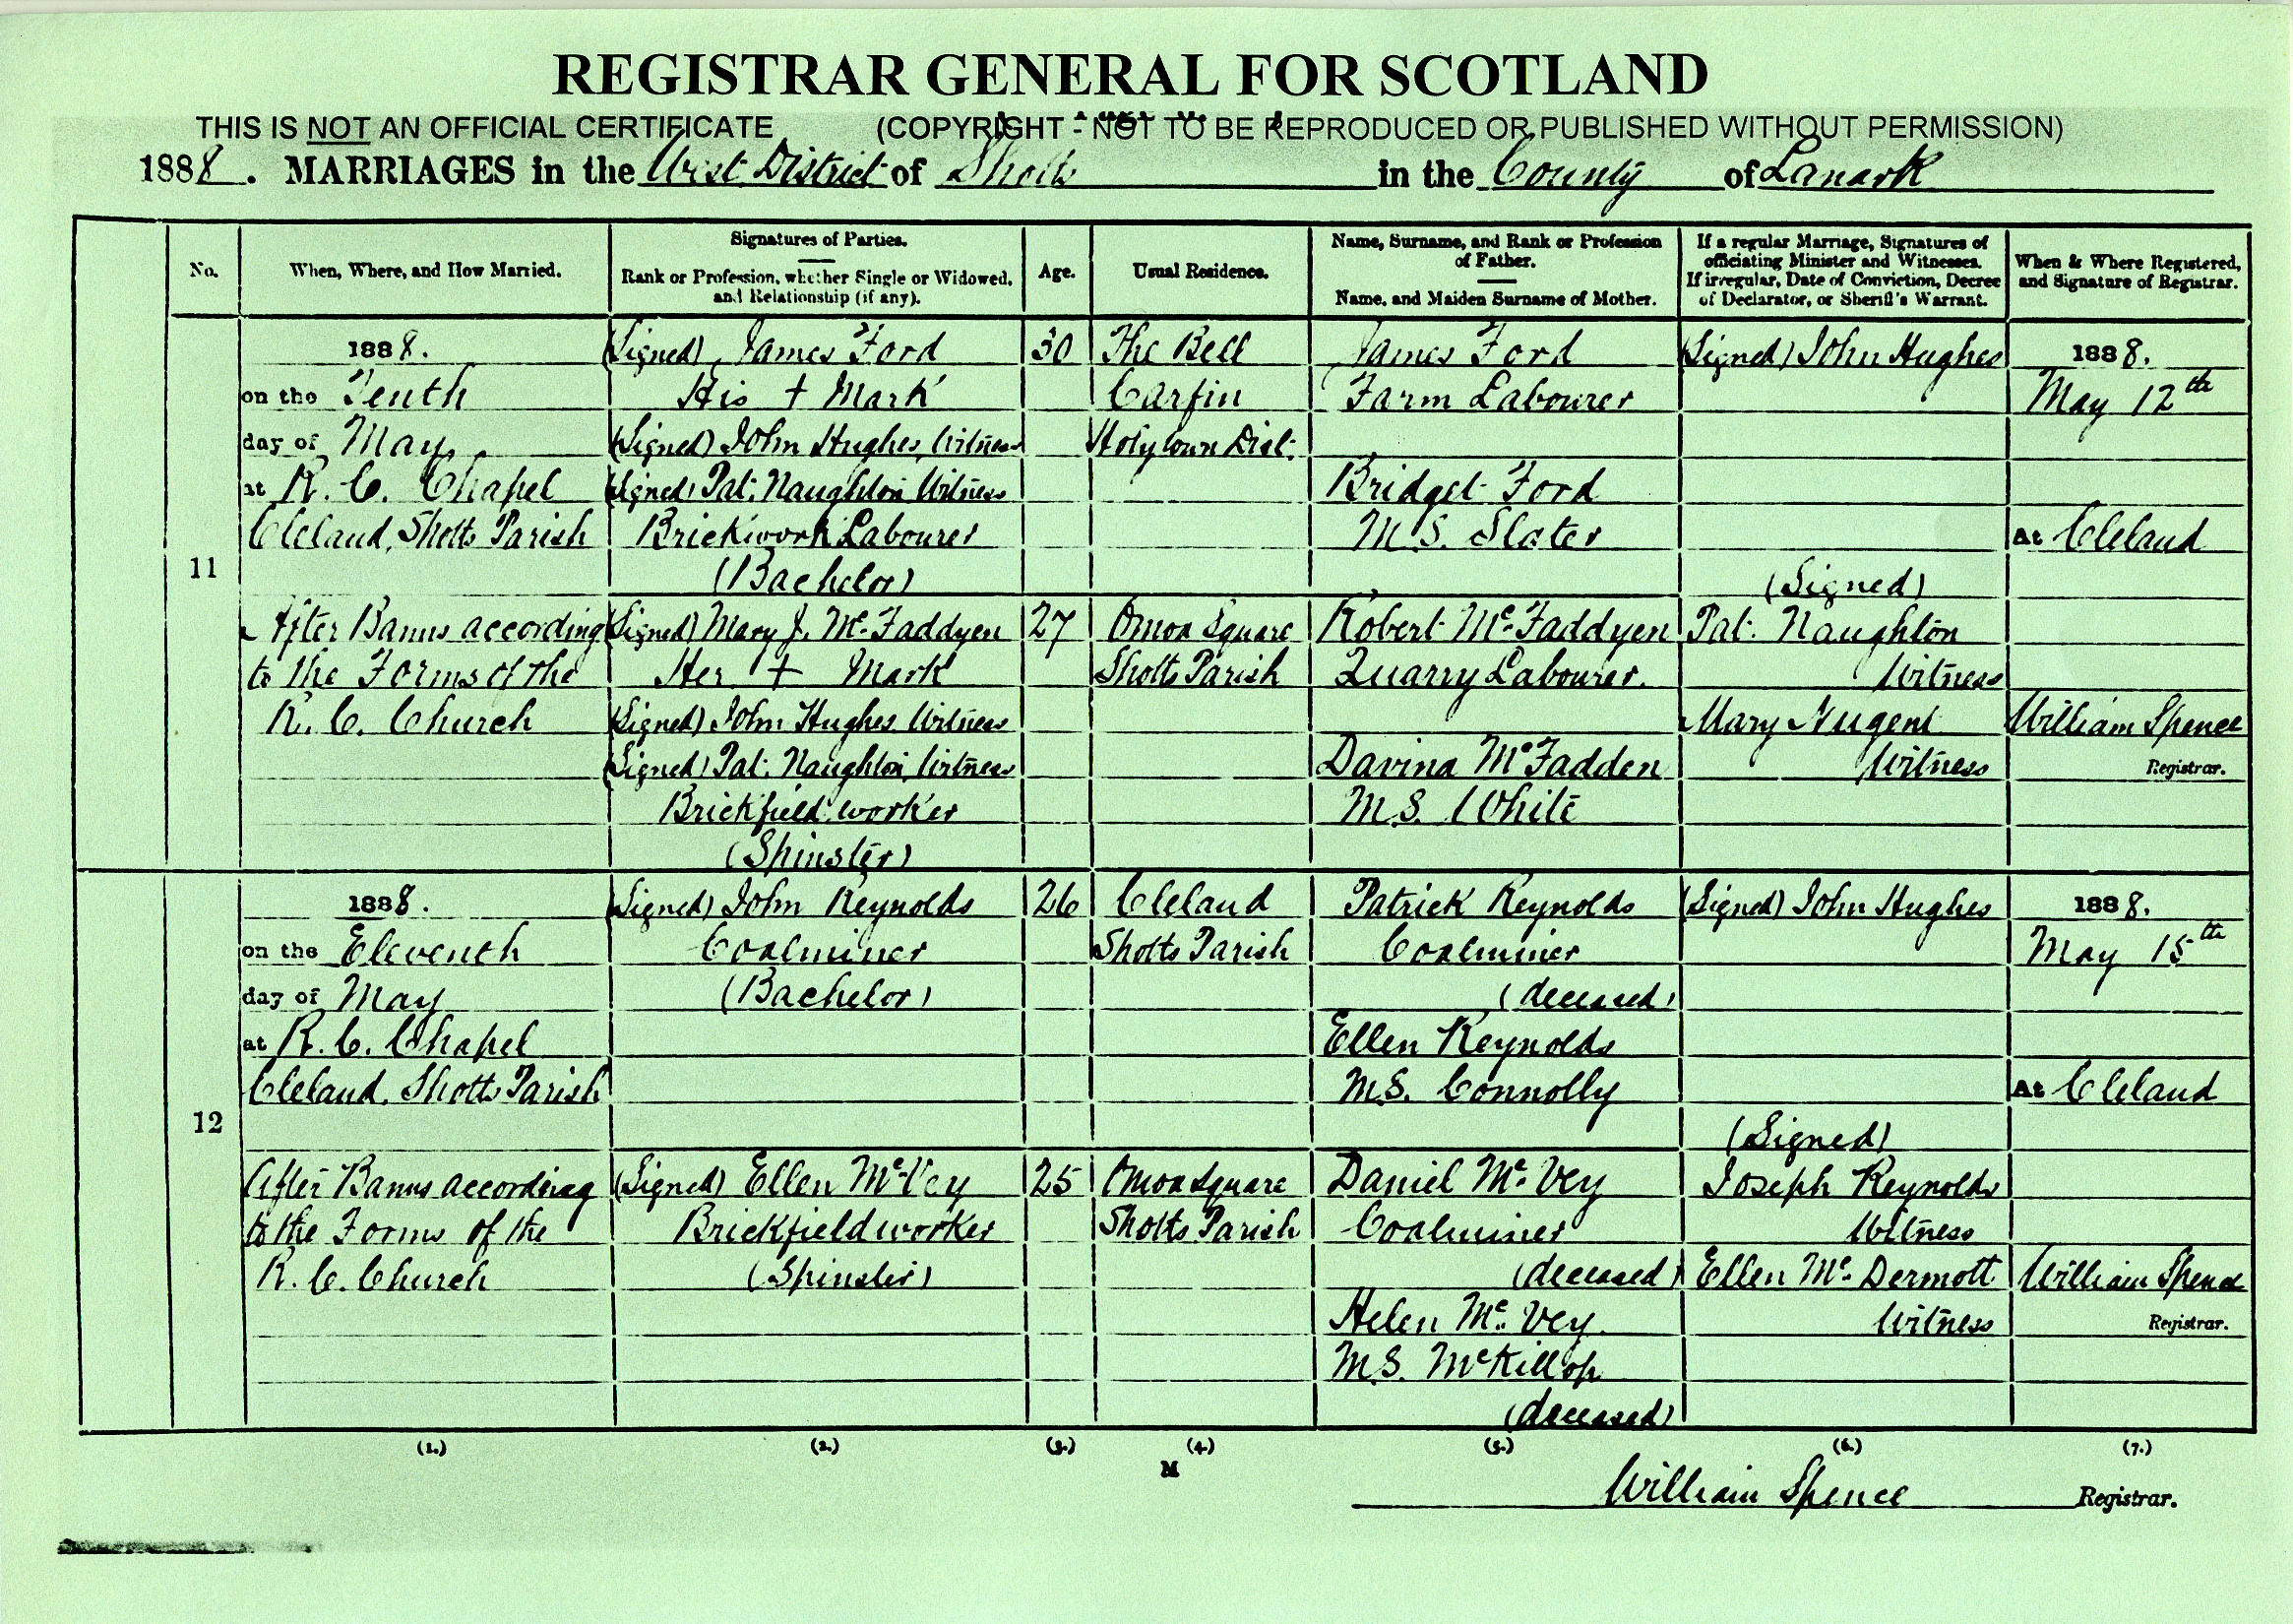 REGISTRAR GENERAL FOR SCOTLAND
THIS IS NOT AN OFFICIAL CERTIFICATE (COPYRIGHT - NOT TO BE REPRODUCED OR PUBLISHED WITHOUT PERMISSION)
1888. MARRIAGES in the West District of Shotts in the County of Lanark
No.
When, Where, and How Married.
Signatures of Parties.
Rank or Profession, whether Single or Widowed,
and Relationship (if any).
Age.
Usual Residence.
Name, Surname, and Rank or Profession
of Father.
Name, and Maiden Surname of Mother.
If a regular Marriage, Signatures of
officiating Minister and Witnesses.
If irregular, Date of Conviction, Decree
of Declarator, or Sheriff's Warrant.
When & Where Registered,
and Signature of Registrar.
11
1888.
on the Tenth
day of May
at R. C. Chapel
Cleland, Shotts Parish
After Banns according
to the Forms of the
R. C. Church
(Signed) James Ford
His + Mark
(Signed) John Hughes, Witness
(Signed) Pat. Naughton, Witness
Brickwork Labourer
(Bachelor)
(Signed) Mary J. McFaddyen
Her + Mark
(Signed) John Hughes, Witness
(Signed) Pat. Naughton, Witness
Brickfield worker
(Spinster)
30
27
The Bell
Carfin
Holytown Dist.
Omoa Square
Shotts Parish
James Ford
Farm Labourer
Bridget Ford
M.S. Slater
Robert McFaddyen
Quarry Labourer.
Davina McFadden
M.S. White
(Signed) John Hughes
(Signed)
Pat. Naughton
Witness
Mary Nugent
Witness
1888.
May 12th
At Cleland
William Spence
Registrar.
12
1888.
on the Eleventh
day of May
at R. C. Chapel
Cleland, Shotts Parish
After Banns according
to the Forms of the
R. C. Church
(Signed) John Reynolds
Coalminer
(Bachelor)
(Signed) Ellen McVey
Brickfield worker
(Spinster)
26
25
Cleland
Shotts Parish
Omoa Square
Shotts Parish
Patrick Reynolds
Coalminer
(deceased)
Ellen Reynolds
M.S. Connolly
Daniel McVey
Coalminer
(deceased)
Helen McVey.
M.S. McKillop
(deceased)
(Signed) John Hughes
(Signed)
Joseph Reynolds
Witness
Ellen McDermott
Witness
1888.
May 15th
At Cleland
William Spence
Registrar.
(1.) (2.) (3.) (4.) (5.) (6.) (7.)
M
William Spence Registrar.